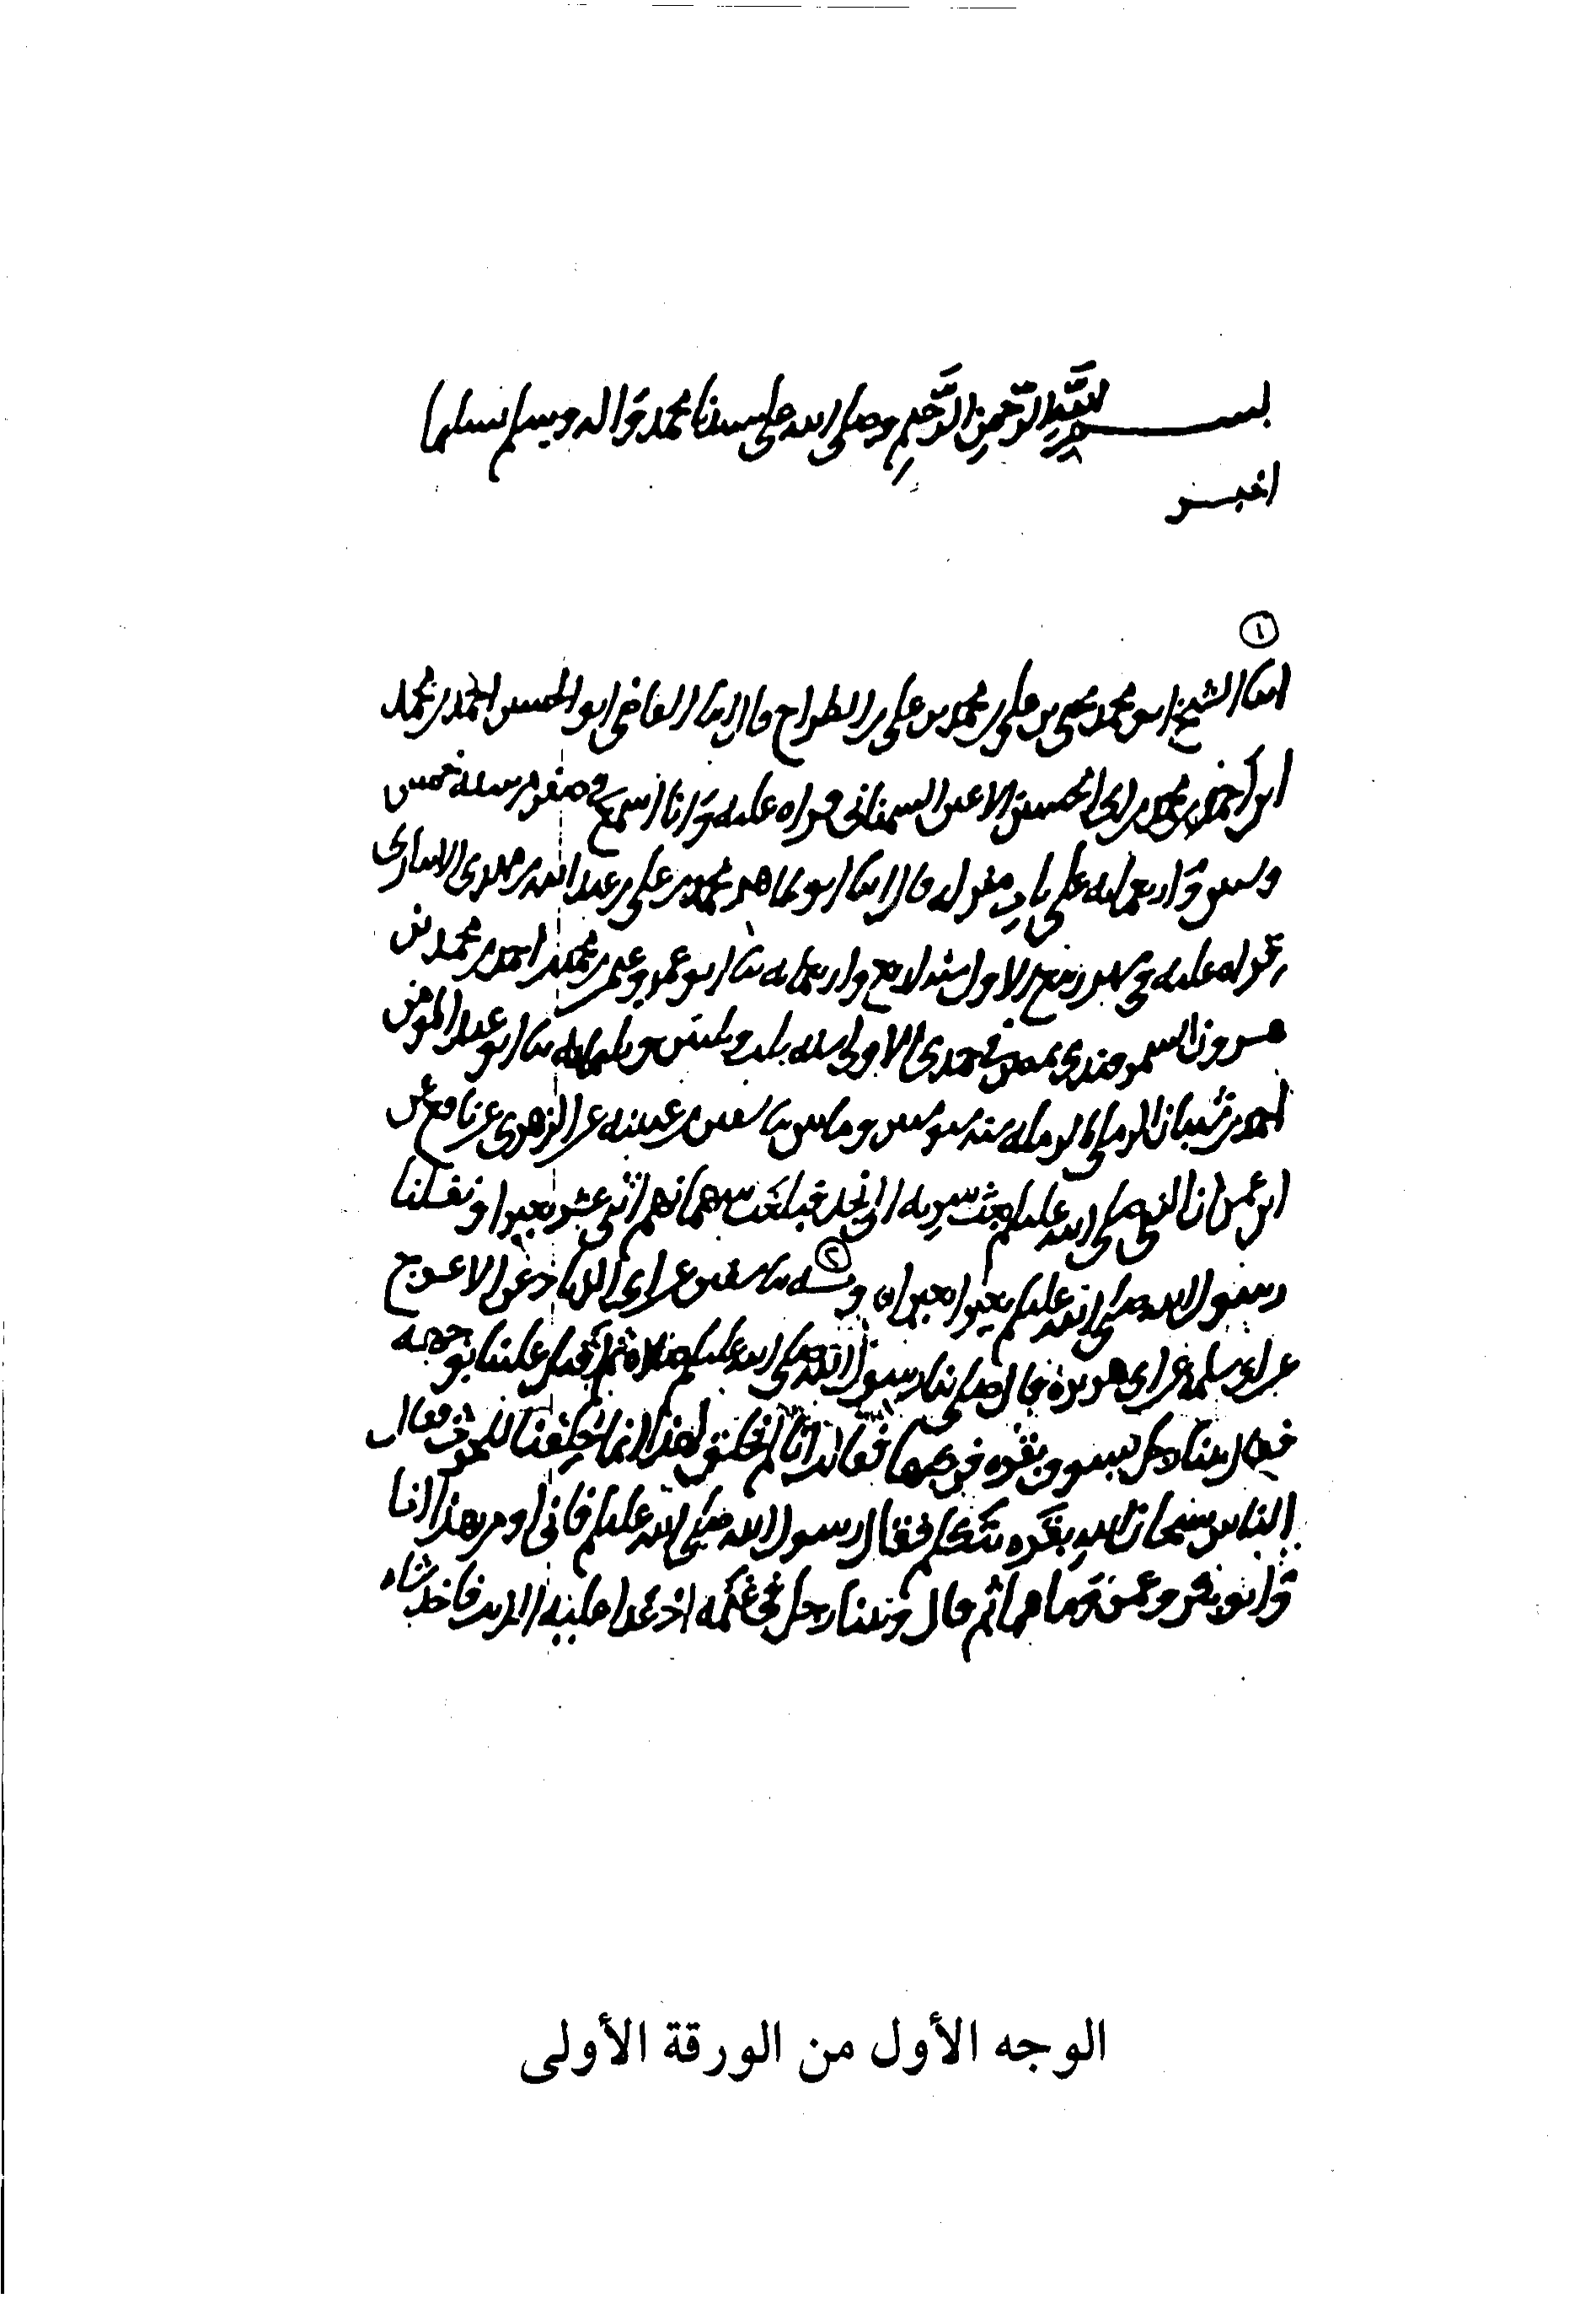 بسم الله الرَّحمنِ الرَّحيمِ وصلى الله على سيدنا محمد وَاله وسلم تسليما
اخبر
١
انبا الشيخ ابو محمد يحيى بن علي بن محمد بن علي بن الطراح قال انبا القاضي ابو الحسين احمد بن محمد
ابن احمد بن محمد بن ابي الحسين السمناني قراه عليه وَانا اسمع في صفر من سنه خمس
وستين وَاربعمايه على باب منزله قال انبا ابو طاهر محمد بن علي بن عبد الله بن مهدي الانباري
قراه عليه في شهر ربيع الاول سنه اربع واربعمايه ثنا ابو عمرو عثمن بن محمد بن احمد بن محمد بن
هرون السمرقندي بمصر في جمدى الاولى سنه ثلث وثلثين وثلثمايه ثنا ابو عبد المومن
احمد بن شيبان الرملي بالرمله سنه وستين ومايتين ثنا سفين بن عيينه عن الزهري عن نافع عن
ابن عمر ان النبي صلى الله عليه وسلم بعث سريه الى نجد فبلغت سهمانهم اثنى عشر بعيرا ونفلنا
رسول الله صلى الله عليه وسلم بعيرا بعيرا ٢ وبه ثنا سفين عن ابي الزناد عن الاعرج
عن ابي سلمه عن ابي هريرة قال صلى بنا رسول الله صلى الله عليه وسلم صلاه ثم اقبل علينا بوجهه
فقال بينا رجل يسوق بقره فركبها فقالت انا لم نخلق لهذا انما خلقنا للحرث فقال
الناس سبحان الله بقره تتكلم فقال رسول الله صلى الله عليه وسلم فاني اومن بهذا انا
وَابو بكر وعمر وَما هما ثم قال وبينا رجل في غنمه اذ عدا عليه الذيب فاخذ شاه
الوجه الأول من الورقة الأولى